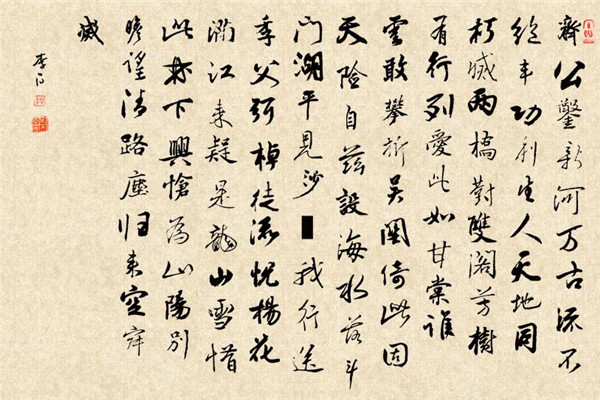 齊公鑿新河万古流不
絶丰功利生人天地同
朽滅两橋對雙閣芳樹
有行列愛此如甘棠誰
雲敢攀折吴關倚此固
天險自兹設海水落斗
門湖平見沙我行送
季父弭棹徒流悦楊花
滿江来疑是龍山雪惜
此林下興愴為山陽別
瞻望清路塵归来空寂
滅
李白